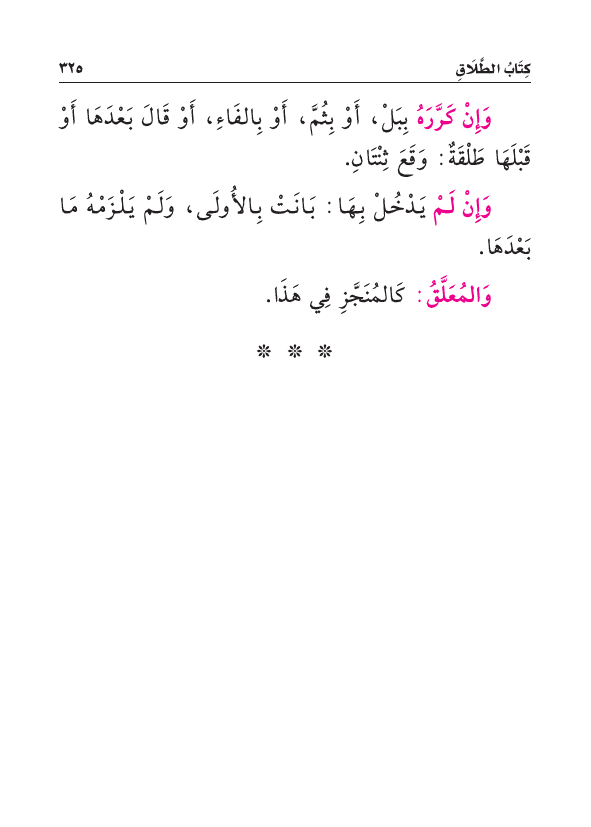 كِتَابُ الطَّلَاقِ ٣٢٥
وَإِنْ كَرَّرَهُ بِبَلْ، أَوْ بِثُمَّ، أَوْ بِالفَاءِ، أَوْ قَالَ بَعْدَهَا أَوْ
قَبْلَهَا طَلْقَةٌ: وَقَعَ ثِنْتَانِ.
وَإِنْ لَمْ يَدْخُلْ بِهَا: بَانَتْ بِالأُولَى، وَلَمْ يَلْزَمْهُ مَا
بَعْدَهَا.
وَالمُعَلَّقُ: كَالمُنَجَّزِ فِي هَذَا.